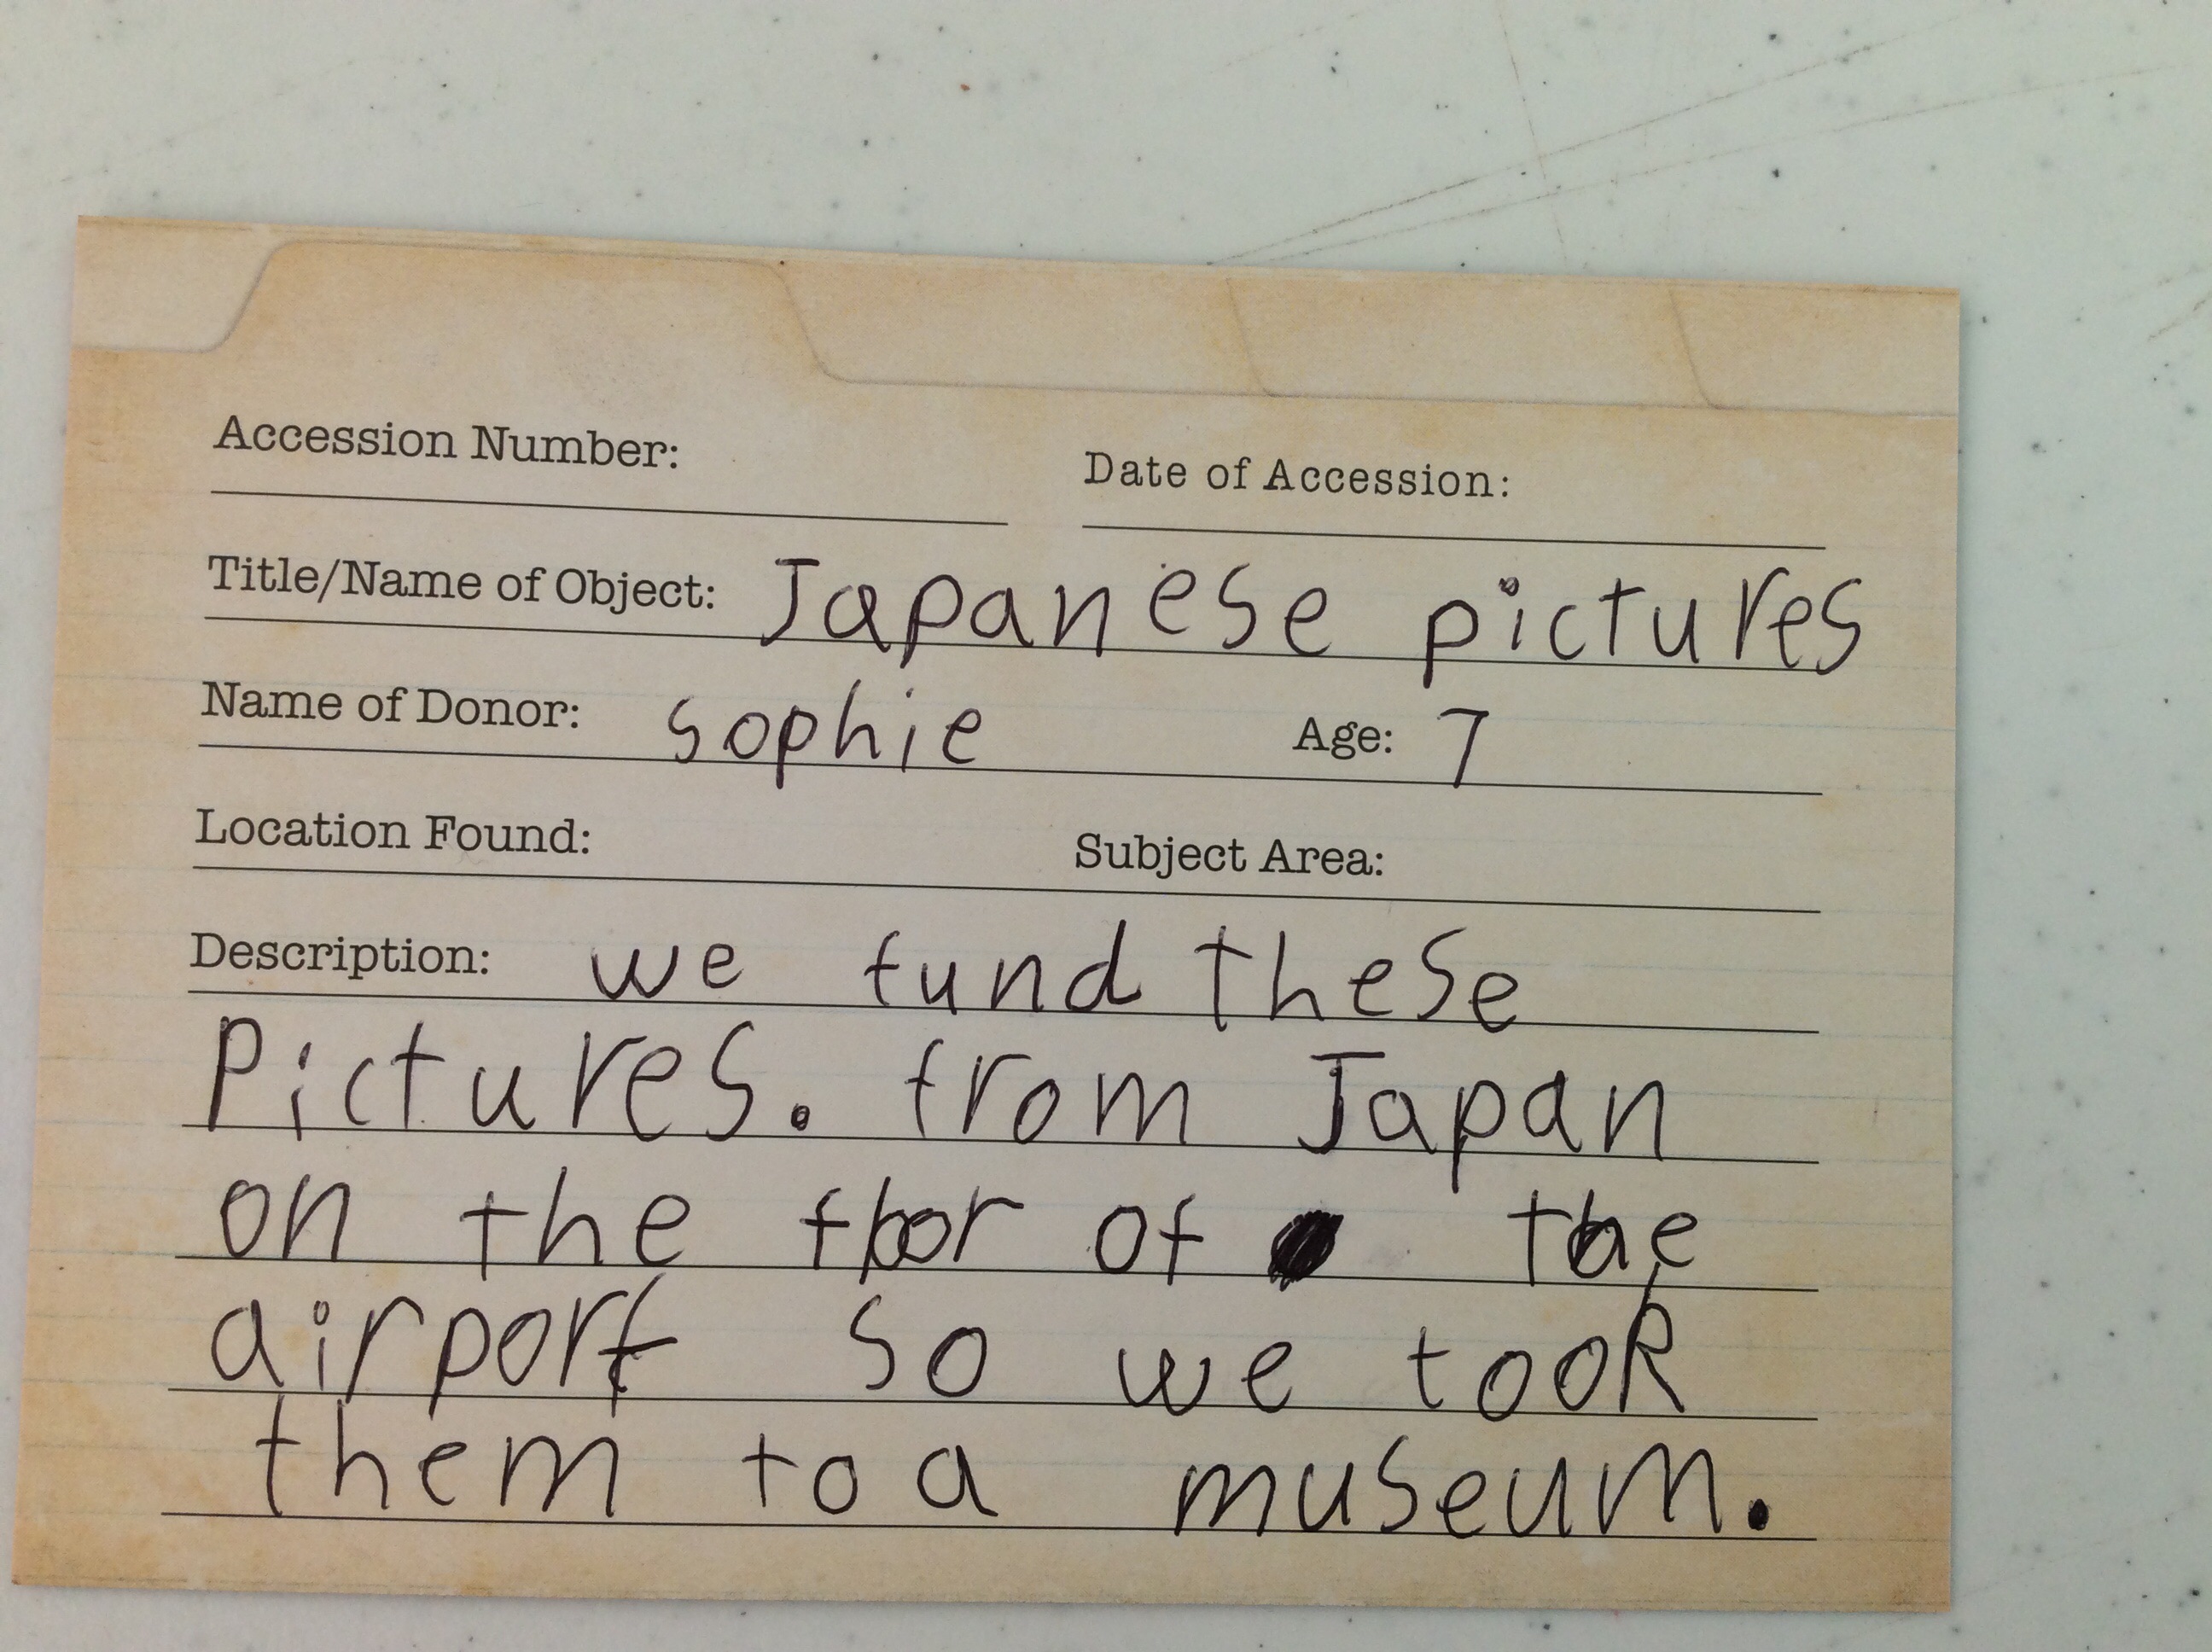 Accession Number: Date of Accession:
Title/Name of Object: Japanese pictures
Name of Donor: sophie Age: 7
Location Found: Subject Area:
Description: we fund these
Pictures. from Japan
on the floor of the
airport so we took
them to a museum.